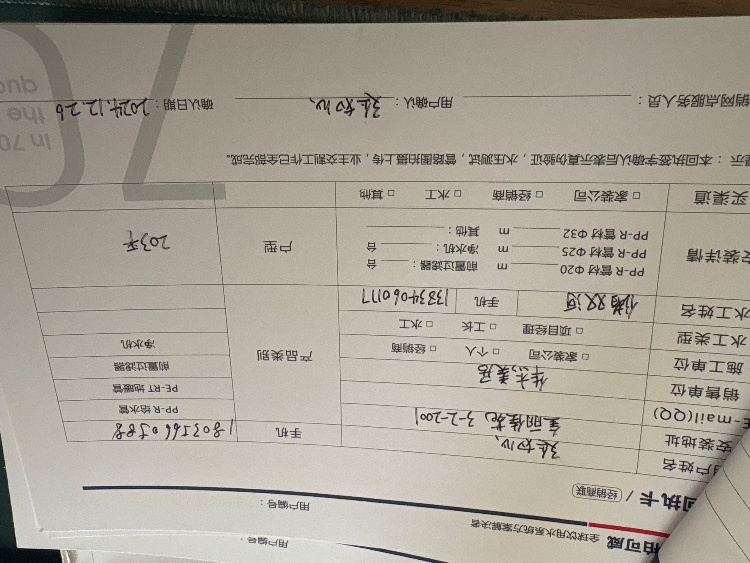 柏可威 全球饮水系统方案解决者
用户编号：
用户编号：
回执卡 / 经销商联
用户姓名
手机 18035660588
安装地址 3-2-2001
E-mail(QQ)
销售单位
施工单位 □ 家装公司 □ 个人 □ 经销商
水工类型 □ 项目经理 □ 工长 □ 水工
水工姓名 双河 手机 13834060177
产品类别
PP-R 给水管
PE-RT 地暖管
前置过滤器
净水机
安装详情
PP-R 管材 Φ20 m 前置过滤器： 台
PP-R 管材 Φ25 m 净水机： 台
PP-R 管材 Φ32 m 其他：
户型 203平
买渠道 □ 家装公司 □ 经销商 □ 水工 □ 其他
提示：本回执签字确认后表示真伪验证，水压测试，管路图拍摄上传，业主交割工作已全部完成。
销网点服务人员： 用户确认： 确认日期：2024.12.26
In 70
the
quo
70